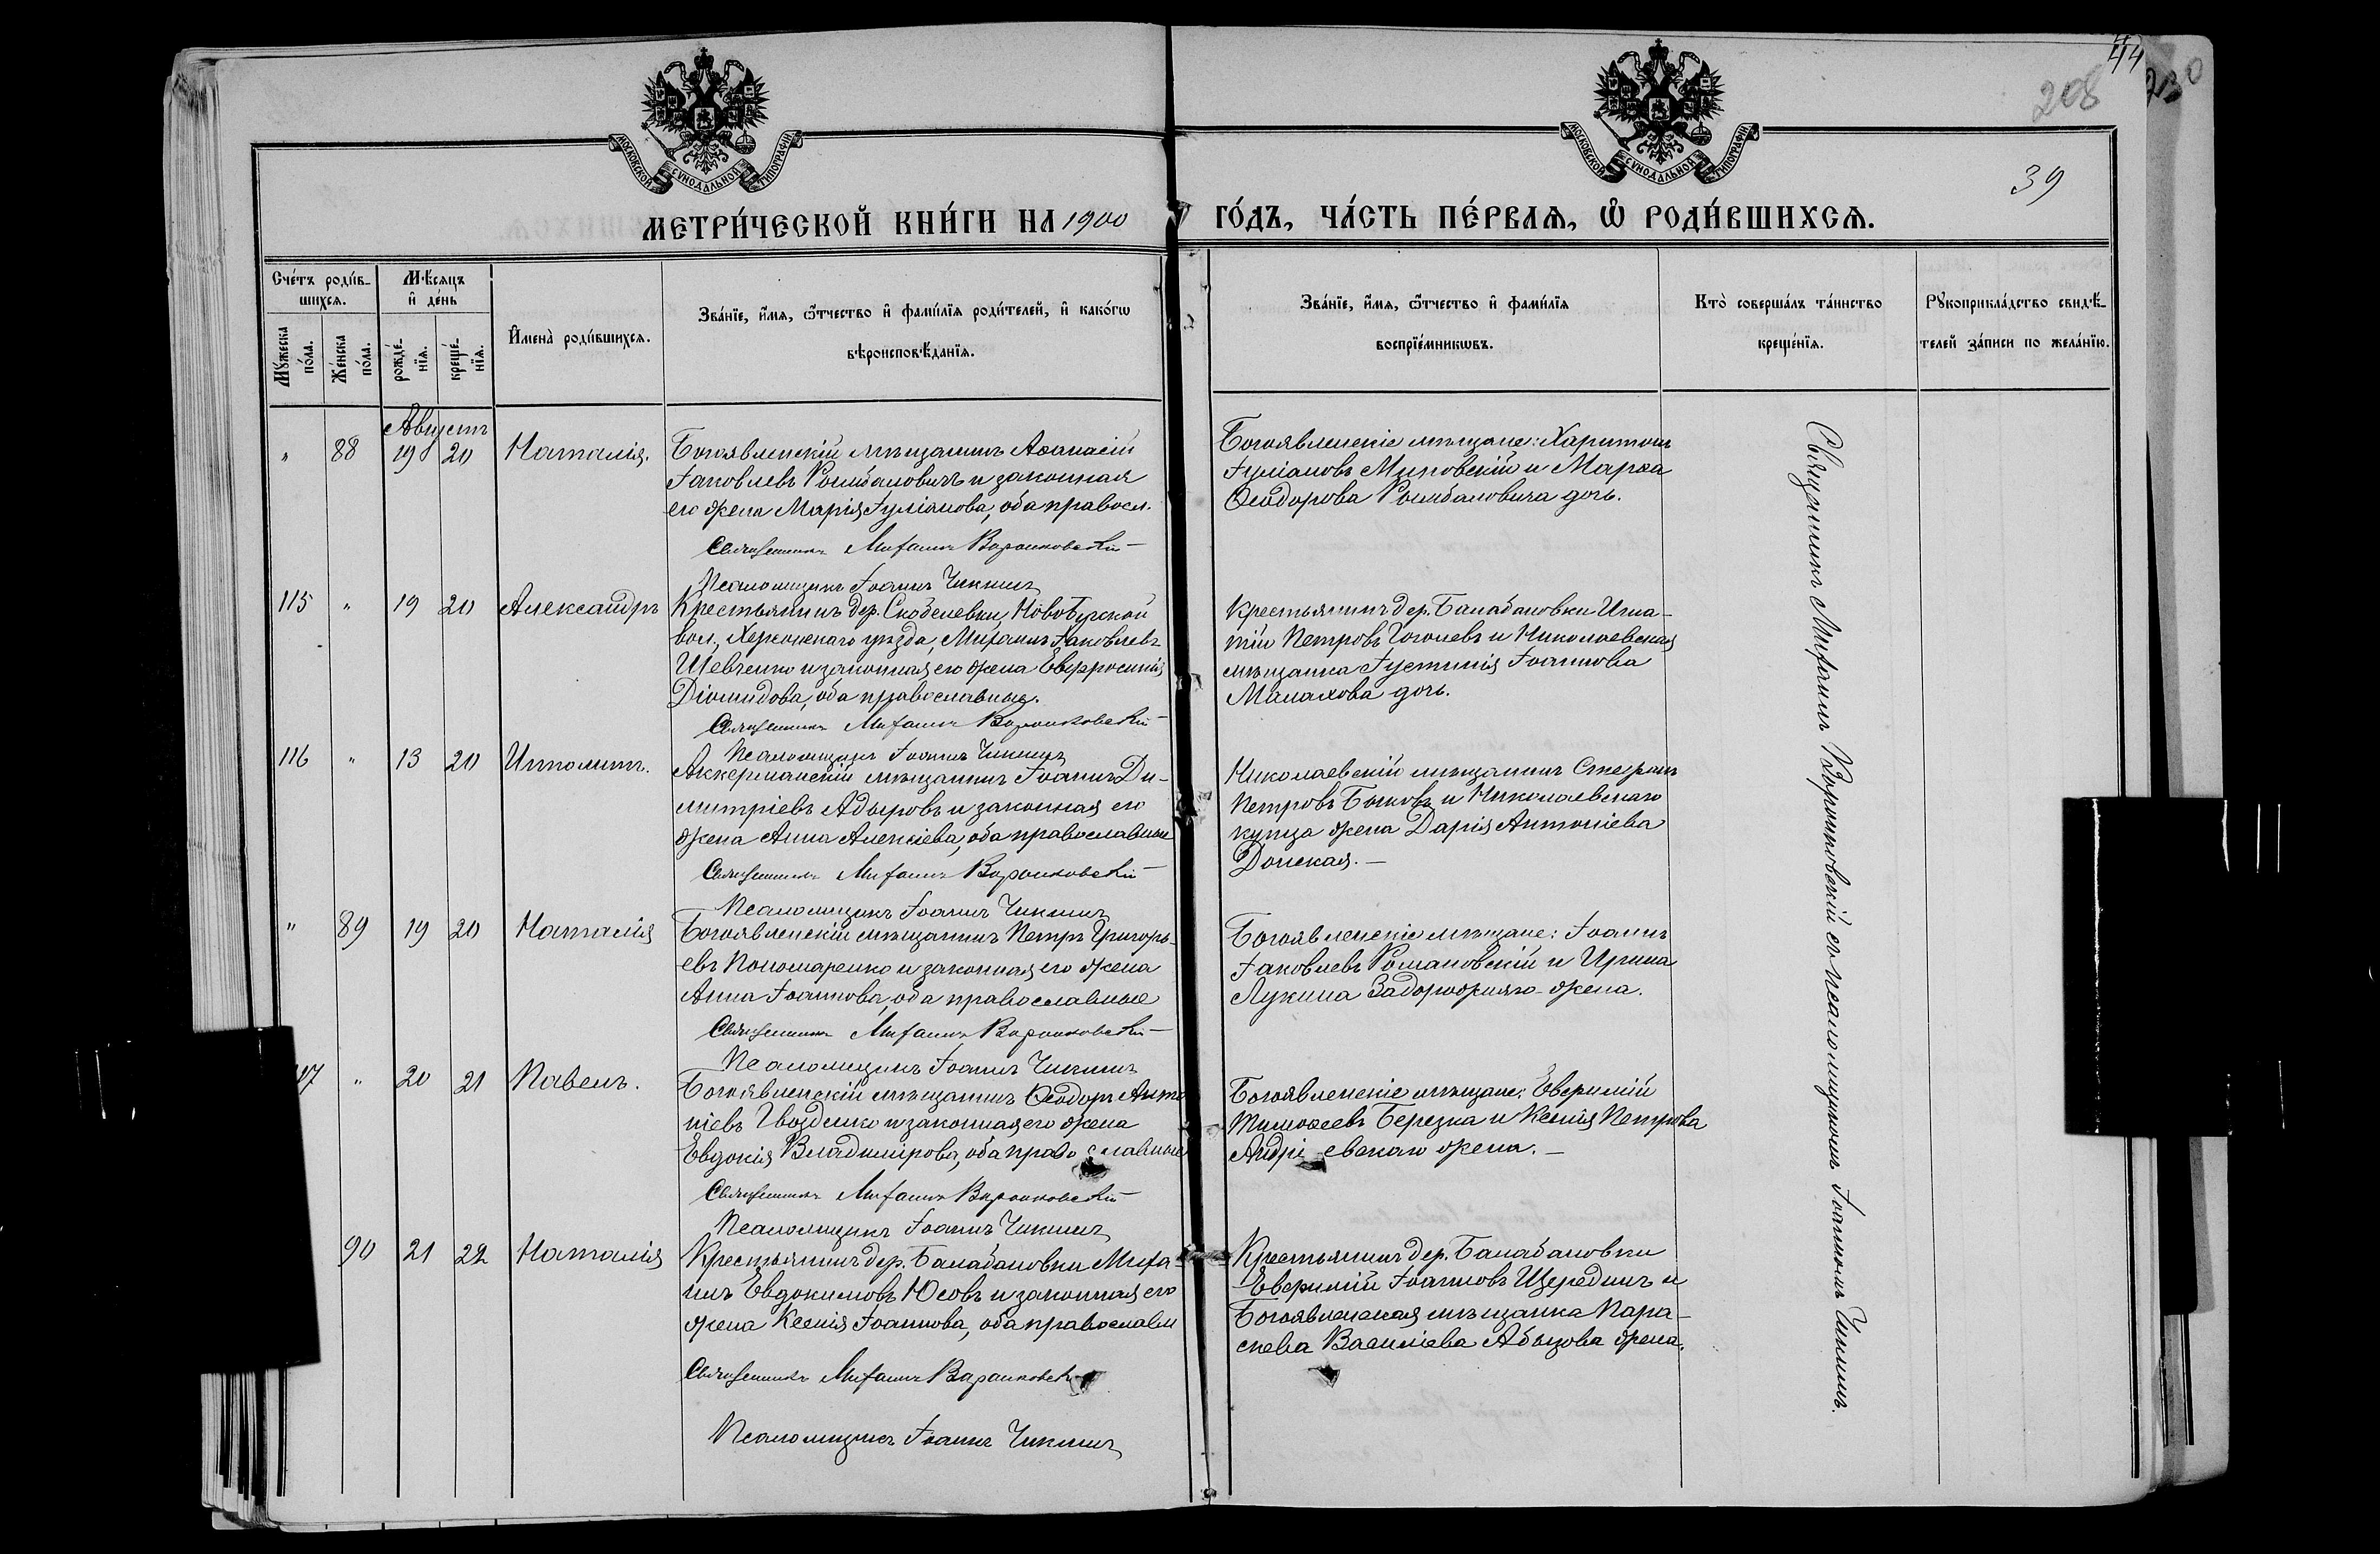 44
208
230
39
МОСКОВСКОЙ СѴНОДАЛЬНОЙ ТИПОГРАФІИ
МОСКОВСКОЙ СѴНОДАЛЬНОЙ ТИПОГРАФІИ
МЕТРИ́ЧЕСКОЙ КНИ́ГИ НА 1900 ГО́ДЪ, ЧА́СТЬ ПЕ́РВАѦ, Ѡ҆ РОДИ́ВШИХСѦ.
Сче́тъ роди́в-
шихсѧ.
Мꙋжеска
по́ла.
Же́нска
по́ла.
Мѣсѧцъ
и҆ де́нь
рожде́-
нїѧ.
креще́-
нїѧ.
И҆мена̀ роди́вшихсѧ.
Зва́нїе, и҆́мѧ, ѻ҆́тчество и҆ фами́лїѧ роди́телей, и҆ како́гѡ
вѣроисповѣ́данїѧ.
Зва́нїе, и҆́мѧ, ѻ҆́тчество и҆ фами́лїѧ
воспрїе́мникѡвъ.
Кто̀ соверша́лъ та́инство
креще́нїѧ.
Рꙋкоприкла́дство свидѣ́-
телей за́писи по жела́нїю.
Августъ
" 88 19 20 Наталія.
Богоявленскій мѣщанинъ Аѳанасій
Іаковлевъ Рымбаловичъ и законная
его жена Марія Іуліанова, оба правосл.
Священникъ Михаилъ Воронковскій
Псаломщикъ Іоаннъ Чикминъ
Богоявленскіе мѣщане: Харитонъ
Іуліановъ Муновскій и Марѳа
Ѳеодорова Рымбаловича дочь.
115 " 19 20 Александръ
Крестьянинъ дер. Скобелевки, Новобугской
вол., Херсонскаго уѣзда, Михаилъ Іаковлевъ
Шевченко и законная его жена Евфросинія
Діомидова, оба православные.
Священникъ Михаилъ Воронковскій
Псаломщикъ Іоаннъ Чикминъ
Крестьянинъ дер. Балабановки Игна-
тій Петровъ Гоголевъ и Николаевская
мѣщанка Іустинія Іоаннова
Малахова дочь.
116 " 13 20 Ипполитъ.
Аккерманскій мѣщанинъ Іоаннъ Ди-
митріевъ Адыровъ и законная его
жена Анна Алексіева, оба православные
Священникъ Михаилъ Воронковскій
Псаломщикъ Іоаннъ Чикминъ
Николаевскій мѣщанинъ Стефанъ
Петровъ Боковъ и Николаевскаго
купца жена Дарія Антоніева
Донская.
" 89 19 20 Наталія
Богоявленскій мѣщанинъ Петръ Григорь-
евъ Пономаренко и законная его жена
Анна Іоаннова, оба православные
Священникъ Михаилъ Воронковскій
Псаломщикъ Іоаннъ Чикминъ
Богоявленскіе мѣщане: Іоаннъ
Іаковлевъ Романовскій и Ирина
Лукина Задорожняго жена.
117 " 20 21 Павелъ.
Богоявленскій мѣщанинъ Ѳеодоръ Анто
ніевъ Гвозденко и законная его жена
Евдокія Владимірова, оба православные
Священникъ Михаилъ Воронковскій
Псаломщикъ Іоаннъ Чикминъ
Богоявленскіе мѣщане: Евфимій
Тимоѳеевъ Березка и Ксенія Петрова
Андріевскаго жена.
90 21 22 Наталія
Крестьянинъ дер. Балабановки Миха-
илъ Евдокимовъ Юсовъ и законная его
жена Ксенія Іоаннова, оба православн
Священникъ Михаилъ Воронковск
Псаломщикъ Іоаннъ Чикминъ
Крестьянинъ дер. Балабановки
Евфимій Іоанновъ Щерединъ и
Богоявленская мѣщанка Пара-
скева Василіева Абызова жена.
Священникъ Михаилъ Воронковскій съ псаломщикомъ Іоанномъ Чикминъ.